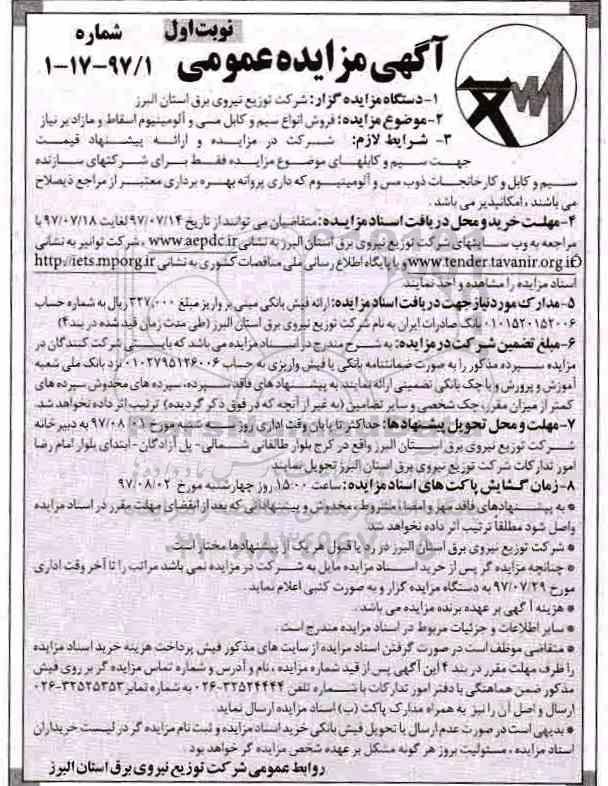 نوبت اول
آگهی مزایده عمومی
شماره
۱-۱۷-۹۷/۱
۱-دستگاه مزایده گزار: شرکت توزیع نیروی برق استان البرز
۲-موضوع مزایده: فروش انواع سیم و کابل مسی و آلومینیوم اسقاط و مازاد بر نیاز
۳- شرایط لازم: شرکت در مزایده و ارائه پیشنهاد قیمت
جهت سیم و کابلهای موضوع مزایده فقط برای شرکتهای سازنده
سیم و کابل و کارخانجات ذوب مس و آلومینیوم که داری پروانه بهره برداری معتبر از مراجع ذیصلاح
می باشند ، امکانپذیر می باشد .
۴-مهلت خرید و محل دریافت اسناد مزایده: متقاضیان می توانند از تاریخ ۹۷/۰۷/۱۴ لغایت ۹۷/۰۷/۱۸ با
مراجعه به وب سایتهای شرکت توزیع نیروی برق استان البرز به نشانی www.aepdc.ir ، شرکت توانیر به نشانی
www.tender.tavanir.org.ir و یا پایگاه اطلاع رسانی ملی مناقصات کشوری به نشانی http://iets.mporg.ir
اسناد مزایده را مشاهده و اخذ نمایند
۵-مدارک مورد نیاز جهت دریافت اسناد مزایده: ارائه فیش بانکی مبنی بر واریز مبلغ ۳۲۷,۰۰۰ ریال به شماره حساب
۰۱۰۱۵۲۰۱۵۲۰۰۶ بانک صادرات ایران به نام شرکت توزیع نیروی برق استان البرز (طی مدت زمان قید شده در بند۴)
۶-مبلغ تضمین شرکت در مزایده: به شرح مندرج در اسناد مزایده می باشد که بایستی شرکت کنندگان در
مزایده سپرده مذکور را به صورت ضمانتنامه بانکی یا فیش واریزی به حساب ۰۱۰۲۷۹۵۱۲۶۰۰۶ نزد بانک ملی شعبه
آموزش و پرورش و یا چک بانکی تضمینی ارائه نمایند. به پیشنهاد های فاقد سپرده، سپرده های مخدوش سپرده های
کمتر از میزان مقرر، چک شخصی و سایر تضامین (به غیر از آنچه که در فوق ذکر گردیده) ترتیب اثر داده نخواهد شد.
۷-مهلت و محل تحویل پیشنهادها: حداکثر تا پایان وقت اداری روز سه شنبه مورخ ۹۷/۰۸/۰۱ به دبیرخانه
شرکت توزیع نیروی برق استان البرز واقع در کرج بلوار طالقانی شمالی- پل آزادگان- ابتدای بلوار امام رضا
امور تدارکات شرکت توزیع نیروی برق استان البرز تحویل نمایند
۸-زمان گشایش پاکت های اسناد مزایده: ساعت ۱۵:۰۰ روز چهارشنبه مورخ ۹۷/۰۸/۰۲
* به پیشنهادهای فاقد مهر و امضاء، مشروط ، مخدوش و پیشنهاداتی که بعد از انقضای مهلت مقرر در اسناد مزایده
واصل شود مطلقا ترتیب اثر داده نخواهد شد
* شرکت توزیع نیروی برق استان البرز در رد یا قبول هر یک از پیشنهادها مختار است
* چنانچه مزایده گر پس از خرید اسناد مزایده مایل به شرکت در مزایده نمی باشد مراتب را تا آخر وقت اداری
مورخ ۹۷/۰۷/۲۹ به دستگاه مزایده گزار و به صورت کتبی اعلام نماید .
* هزینه آ گهی بر عهده برنده مزایده می باشد .
* سایر اطلاعات و جزئیات مربوط در اسناد مزایده مندرج است .
* متقاضی موظف است در صورت گرفتن اسناد مزایده از سایت های مذکور فیش پرداخت هزینه خرید اسناد مزایده
را ظرف مهلت مقرر در بند ۴ این آگهی پس از قید شماره مزایده ، نام و آدرس و شماره تماس مزایده گر بر روی فیش
مذکور ضمن هماهنگی با دفتر امور تدارکات با شماره تلفن ۳۲۵۲۴۴۴۴-۰۲۶ به شماره نمابر ۳۲۵۲۵۳۵۳-۰۲۶
ارسال و اصل آن را نیز به همراه مدارک پاکت (ب) اسناد مزایده ارسال نماید.
* بدیهی است در صورت عدم ارسال یا تحویل فیش بانکی خرید اسناد مزایده و ثبت نام مزایده گر در لیست خریداران
اسناد مزایده ، مسئولیت بروز هر گونه مشکل بر عهده شخص مزایده گر خواهد بود .
روابط عمومی شرکت توزیع نیروی برق استان البرز